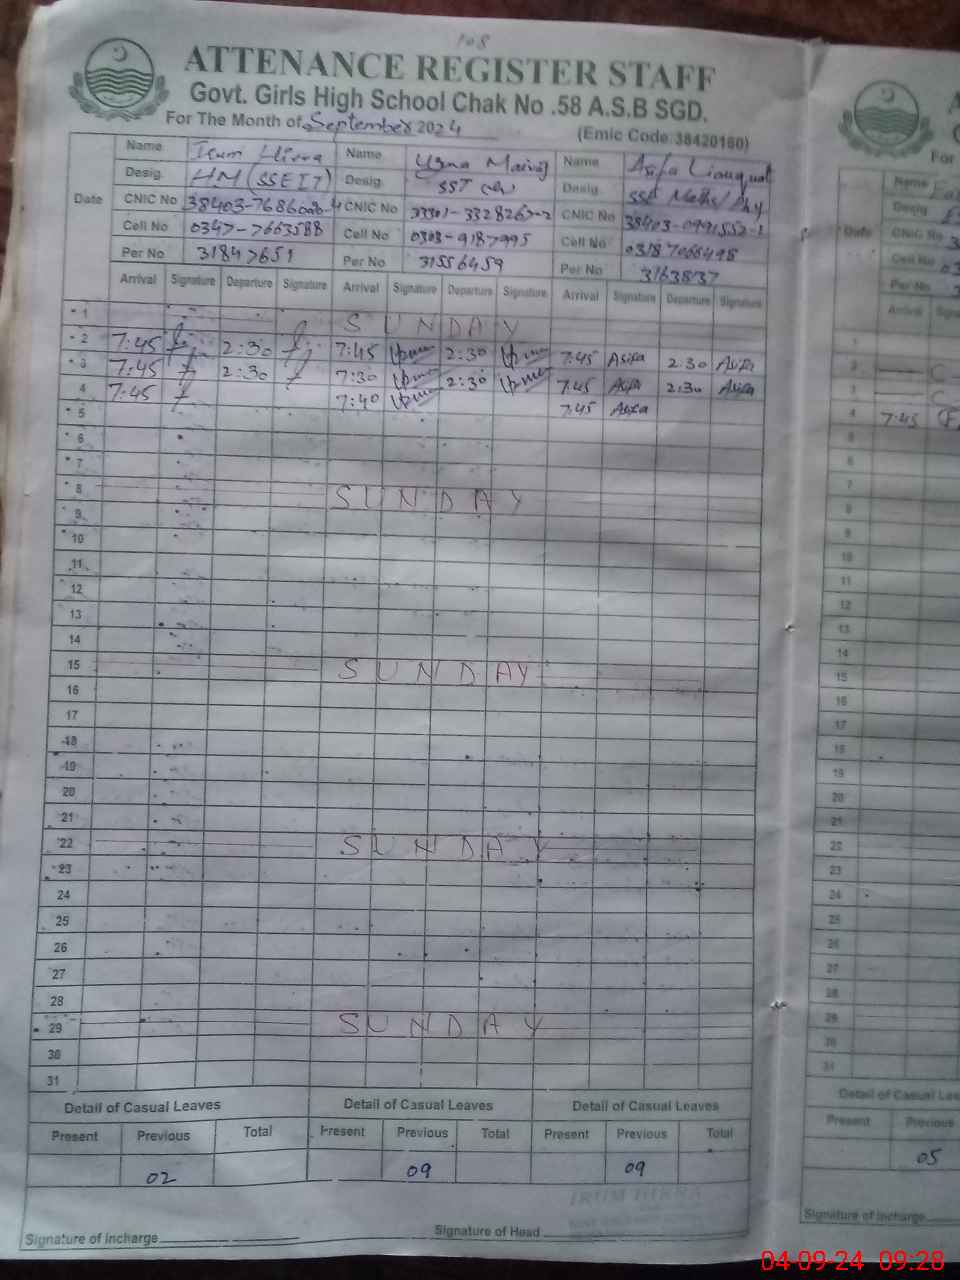 108
ATTENANCE REGISTER STAFF
Govt. Girls High School Chak No .58 A.S.B SGD.
For The Month of September 2024
(Emic Code:38420160)
Date
Name Irum Hirra Name Name Asifa Liauquat
Desig. HM (SSE IT) Desig. SST Desig. SSE Maths/Phy
CNIC No CNIC No 33301-3328267-2 CNIC No 38403-0991552-1
Cell No 0347-7663588 Cell No 0303-9187995 Cell No 03187066498
Per No 31847651 Per No 31556459 Per No 31638137
Arrival Signature Departure Signature Arrival Signature Departure Signature Arrival Signature Departure Signature
1 SUNDAY
2 7:45 2:30 7:45 2:30 7:45 Asifa 2:30 Asifa
3 7:45 2:30 7:30 2:30 7:45 Asifa 2:30 Asifa
4 7:45 7:40 7:45 Asifa
5
6
7
8 SUNDAY
9
10
11
12
13
14
15 SUNDAY
16
17
18
19
20
21
22 SUNDAY
23
24
25
26
27
28
29 SUNDAY
30
31
Detail of Casual Leaves Detail of Casual Leaves Detail of Casual Leaves
Present Previous Total Present Previous Total Present Previous Total
02 09 09
IRUM HIRRA
Signature of Incharge Signature of Head
For
Name
Desig
Date
CNIC No
Cell No
Per No
Arrival
2 C
3 C
4 7:45
5
6
7
8
9
10
11
12
13
14
15
16
17
18
19
20
21
22
23
24
25
26
27
28
29
30
31
Detail of Casual
Present Previous
05
Signature of Incharge
04-09-24 09:28